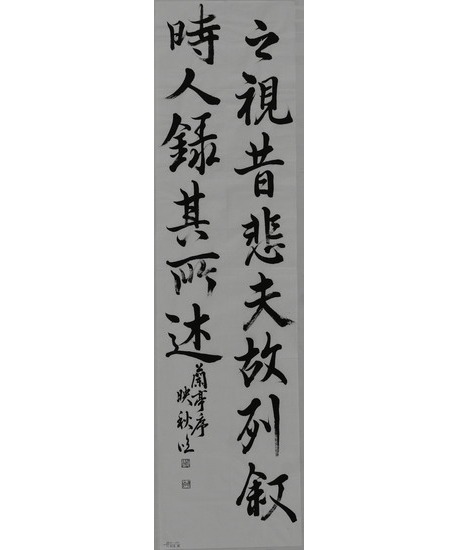 之視昔悲夫故列叙
時人録其所述
蘭亭序
映秋臨